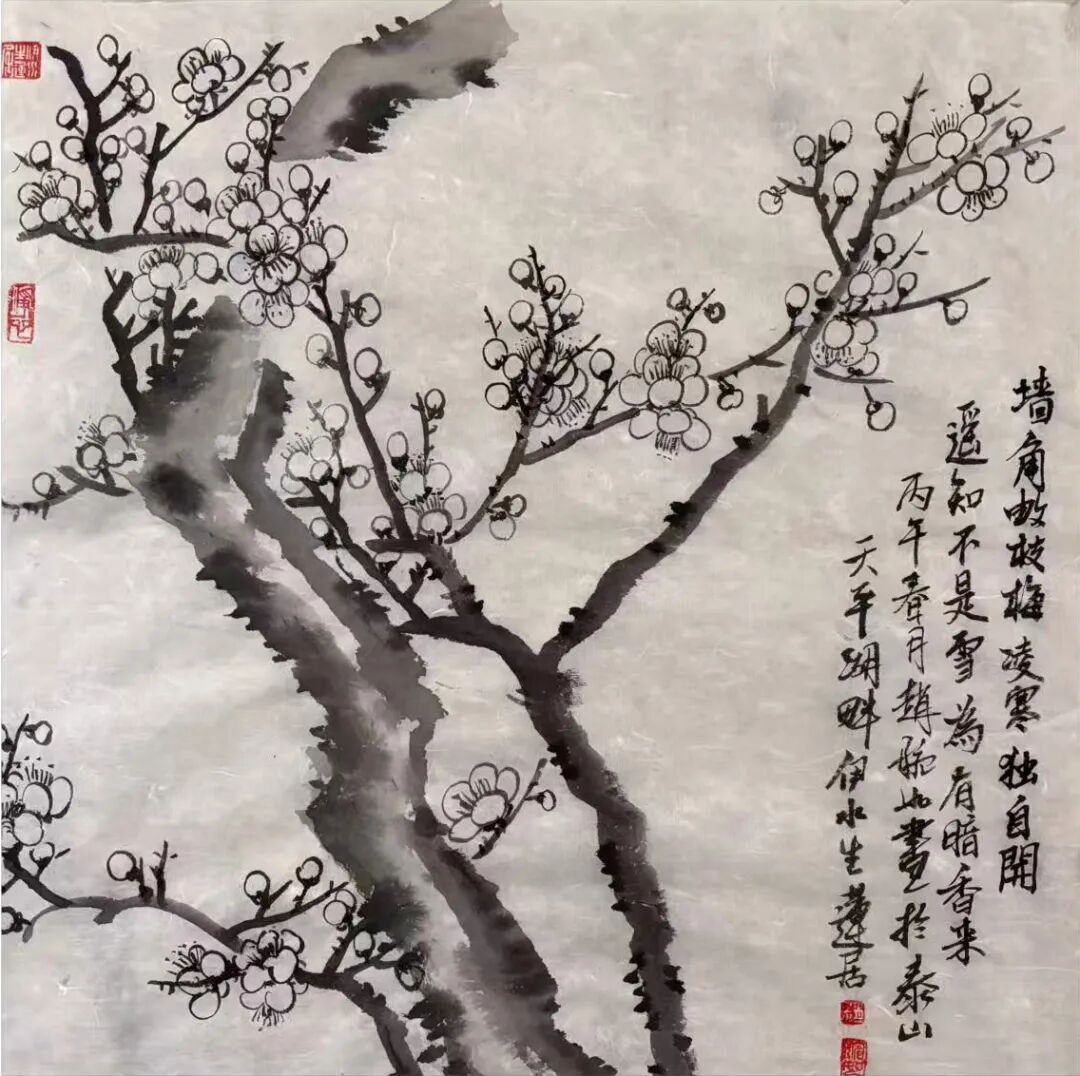 墙角数枝梅凌寒独自開
遥知不是雪為有暗香来
丙午春月趙如畫於泰山
天平湖畔伊水生蓮居